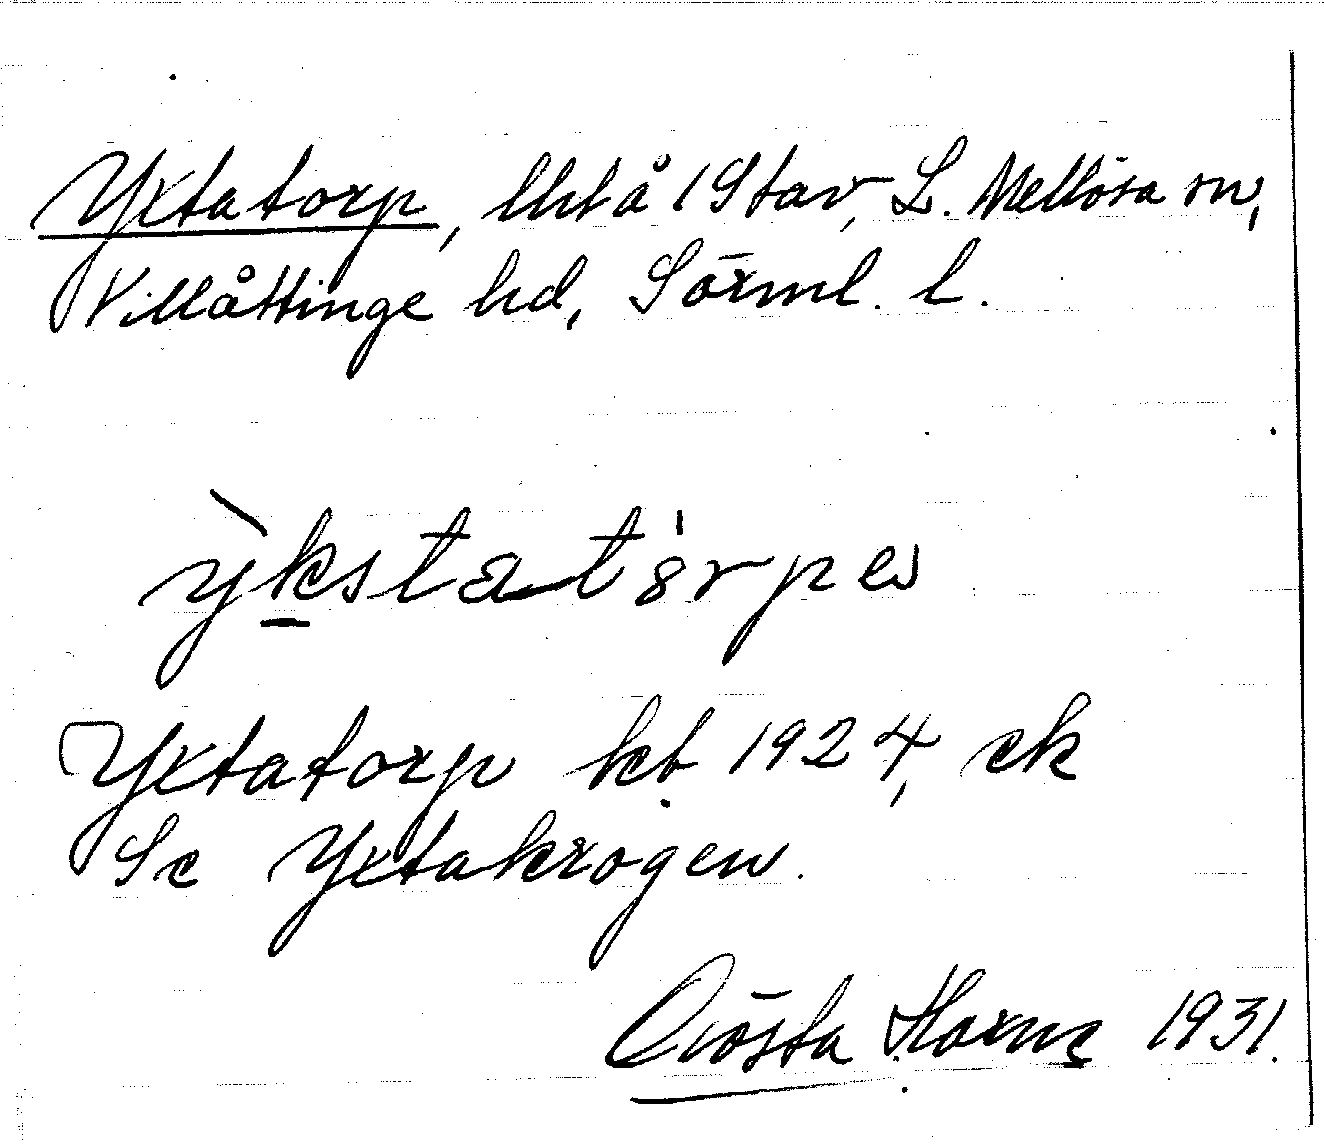 Yxtatorp, Utå 1 Stav, L. Mellösa sn,
Villåttinge hd, Sörml. l.
ỳkstatɵ́rpes
Yxtatorp kb 1924, ek
Se Yxtakrogen.
Gösta Horne 1931.